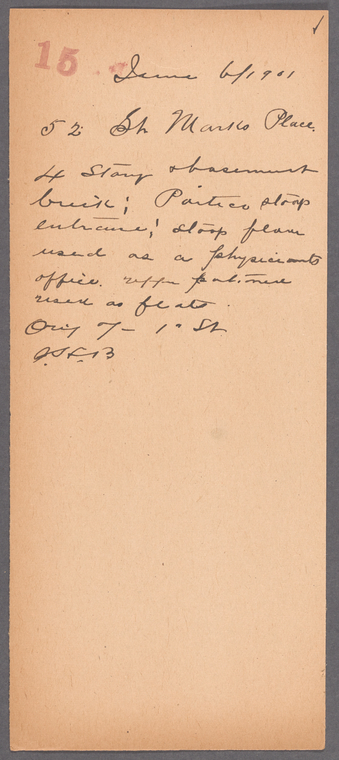 15
June 6/1901
52 St Marks Place.
4 Story & basement
brick; Portico stoop
entrance; stoop floor
used as a physicians
office. upper
used as flats.
Orig 7 - 1" St